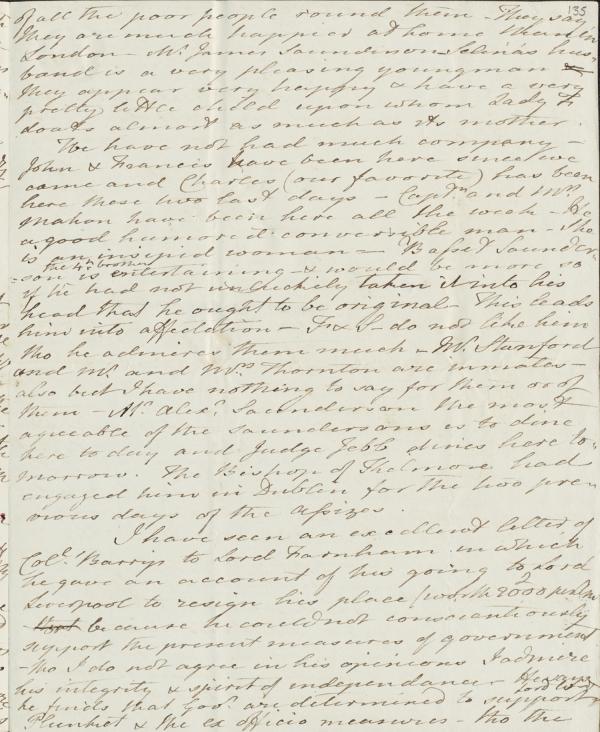 135
of all the poor people round them - They say
they are much happier at home than in
London - Mr. James Saunderson Selina's hus-
band is a very pleasing young man &
they appear very happy & have a very
pretty little child upon whom Lady F
doats almost as much as its mother.
We have not had much company -
John & Francis have been here since we
came and Charles (our favorite) has been
here these two last days - Captn and Mrs.
Mahon have been here all the week - He
a good humored conversible man - She
is an insipid woman - Basset Saunder-
the 4th brother
-son is entertaining - & would be more so
if he had not unluckily taken it into his
head that he ought to be original - This leads
him into affectation - F & S - do not like him
tho he admires them much - Mr. Stanford
and Mr. and Mrs. Thornton are inmates -
also but I have nothing to say for them or of
them - Mr. Alexr. Saunderson the most
agreeable of the Saundersons is to dine
here to day and Judge Jebb dines here to-
morrow. The Bishop of Kilmore had
engaged him in Dublin for the two pre-
vious days of the assizes.
I have seen an excellent letter of
Col. Barry's to Lord Farnham in which
he gave an account of his going to Lord
Liverpool to resign his place (worth 2000
because he could not conscientiously
support the present measures of government
- tho I do not agree in his opinions I admire
his integrity & spirit of independence He says
he finds that Govt. are determined to support
Plunket & the ex officio measures - tho the